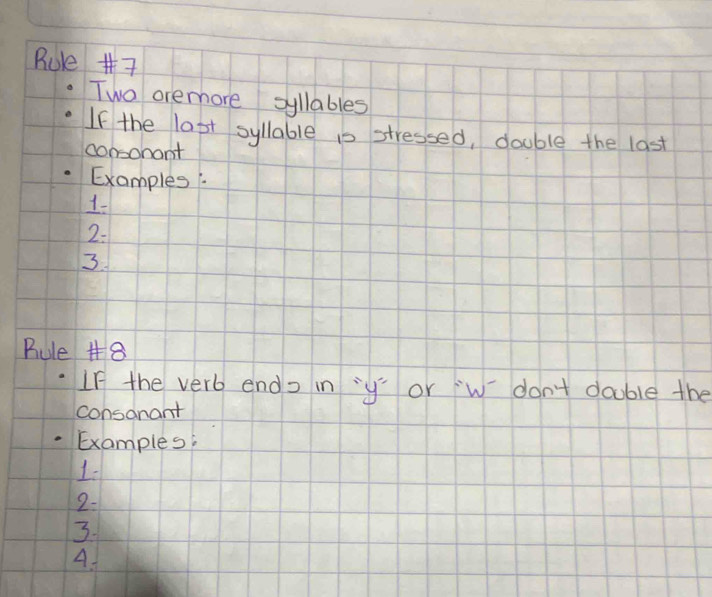 Rule #7
• Two oremore syllables
• If the last syllable is stressed, double the last
consonant
• Examples:
1-
2-
3.
Rule #8
• IF the verb ends in "y" or "w" don't double the
consonant
• Examples:
1-
2-
3-
4-